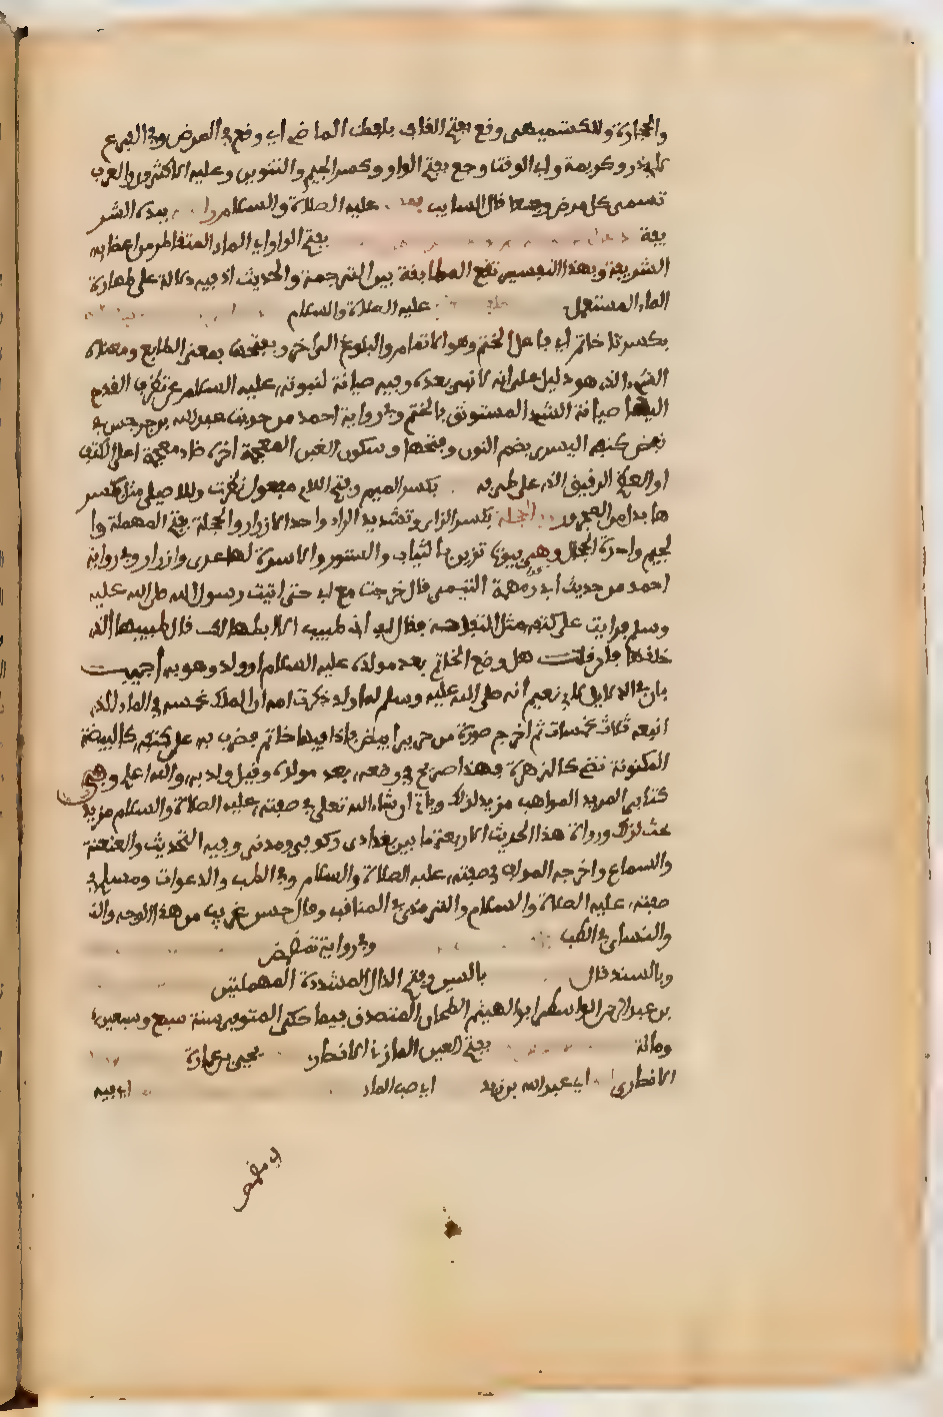 والحجارة وللكشميهني وقع بفتح القاف بلفظ الماضي اي وقع في المرض وفي الفرع
لابي ذر وكريمة وابي الوقت وجع بفتح الواو وكسر الجيم والتنوين وعليه الاكثرون والعرب
تسمي كل مرض وجعا قال السايب عليه الصلاة والسلام بيده الشر
يفة بفتح الواو اي الماء المتقاطر من اعضايه
الشريفة وبهذا التفسير تقع المطابقة بين الترجمة والحديث اذ فيه دلالة على طهارة
الماء المستعمل عليه الصلاة والسلام
بكسر تا خاتم اي فاعل الختم وهو الاتمام والبلوغ الى الاخر وبفتحها بمعنى الطابع ومعناه
الشيء الذي هو دليل على انه لا نبي بعده وفيه صيانة لنبوته عليه السلام عن تطرق القدح
اليها صيانة الشيء المستوثق بالختم وفي رواية احمد من حديث عبد الله بن سرجس في
نغض كتفه اليسرى بضم النون وفتحها وسكون الغين المعجمة اخره ضاد معجمة اعلى الكتف
او العظم الرقيق الذي على طرفه بكسر الميم وفتح اللام مفعول نظرت وللاصيلي مثل بكسر
ها بدل من المجرور الحجلة بكسر الزاي وتشديد الراء واحد الازرار والحجلة بفتح المهملة وا
لجيم واحدة الحجال وهي بيوت تزين بالثياب والستور والاسرة لها عرى وازرار وفي رواية
احمد من حديث ابي رمثة التيمي قال خرجت مع ابي حتى اتيت رسول الله صلى الله عليه
وسلم فرايت على كتفه مثل التفاحة فقال ابي اني طبيب الا ابطها لك قال طبيبها الذي
خلقها فان قلت هل وضع الخاتم بعد مولده عليه السلام او ولد وهو به اجيب
بان في الدلايل لابي نعيم انه صلى الله عليه وسلم لما ولد ذكرت امه ان الملك غمسه في الماء الذي
انبعه ثلاث غمسات ثم اخرج صورة من حرير ابيض فاذا فيها خاتم فضرب به على كتفه كالبيضة
المكنونة تضيء كالزهرة فهذا صريح في وضعه بعد مولده وقيل ولد به والله اعلم وفي
كتابي المريد المواهب مزيد لذلك وياتي ان شاء الله تعلى في صفته عليه الصلاة والسلام مزيد
بحث لذلك ورواة هذا الحديث الاربعة ما بين بغدادي وكوفي ومدني وفيه التحديث والعنعنة
والسماع واخرجه المولف في صفته عليه الصلاة والسلام وفي الطب والدعوات ومسلم في
صفته عليه الصلاة والسلام والترمذي في المناقب وقال حسن غريب من هذا الوجه
والنساي في الطب وفي رواية تمضمض
وبالسند قال بالسين وفتح الدال المشددة المهملتين
بن عبد الرحمن الواسطي ابو الهيثم الطحان المتصدق فيما حكي المتوفى سنة سبع وسبعين
وماية بفتح العين المازني الانصاري يحيى بن عمارة
الانصاري اي عبد الله بن زيد اي صب الماء اي فيه